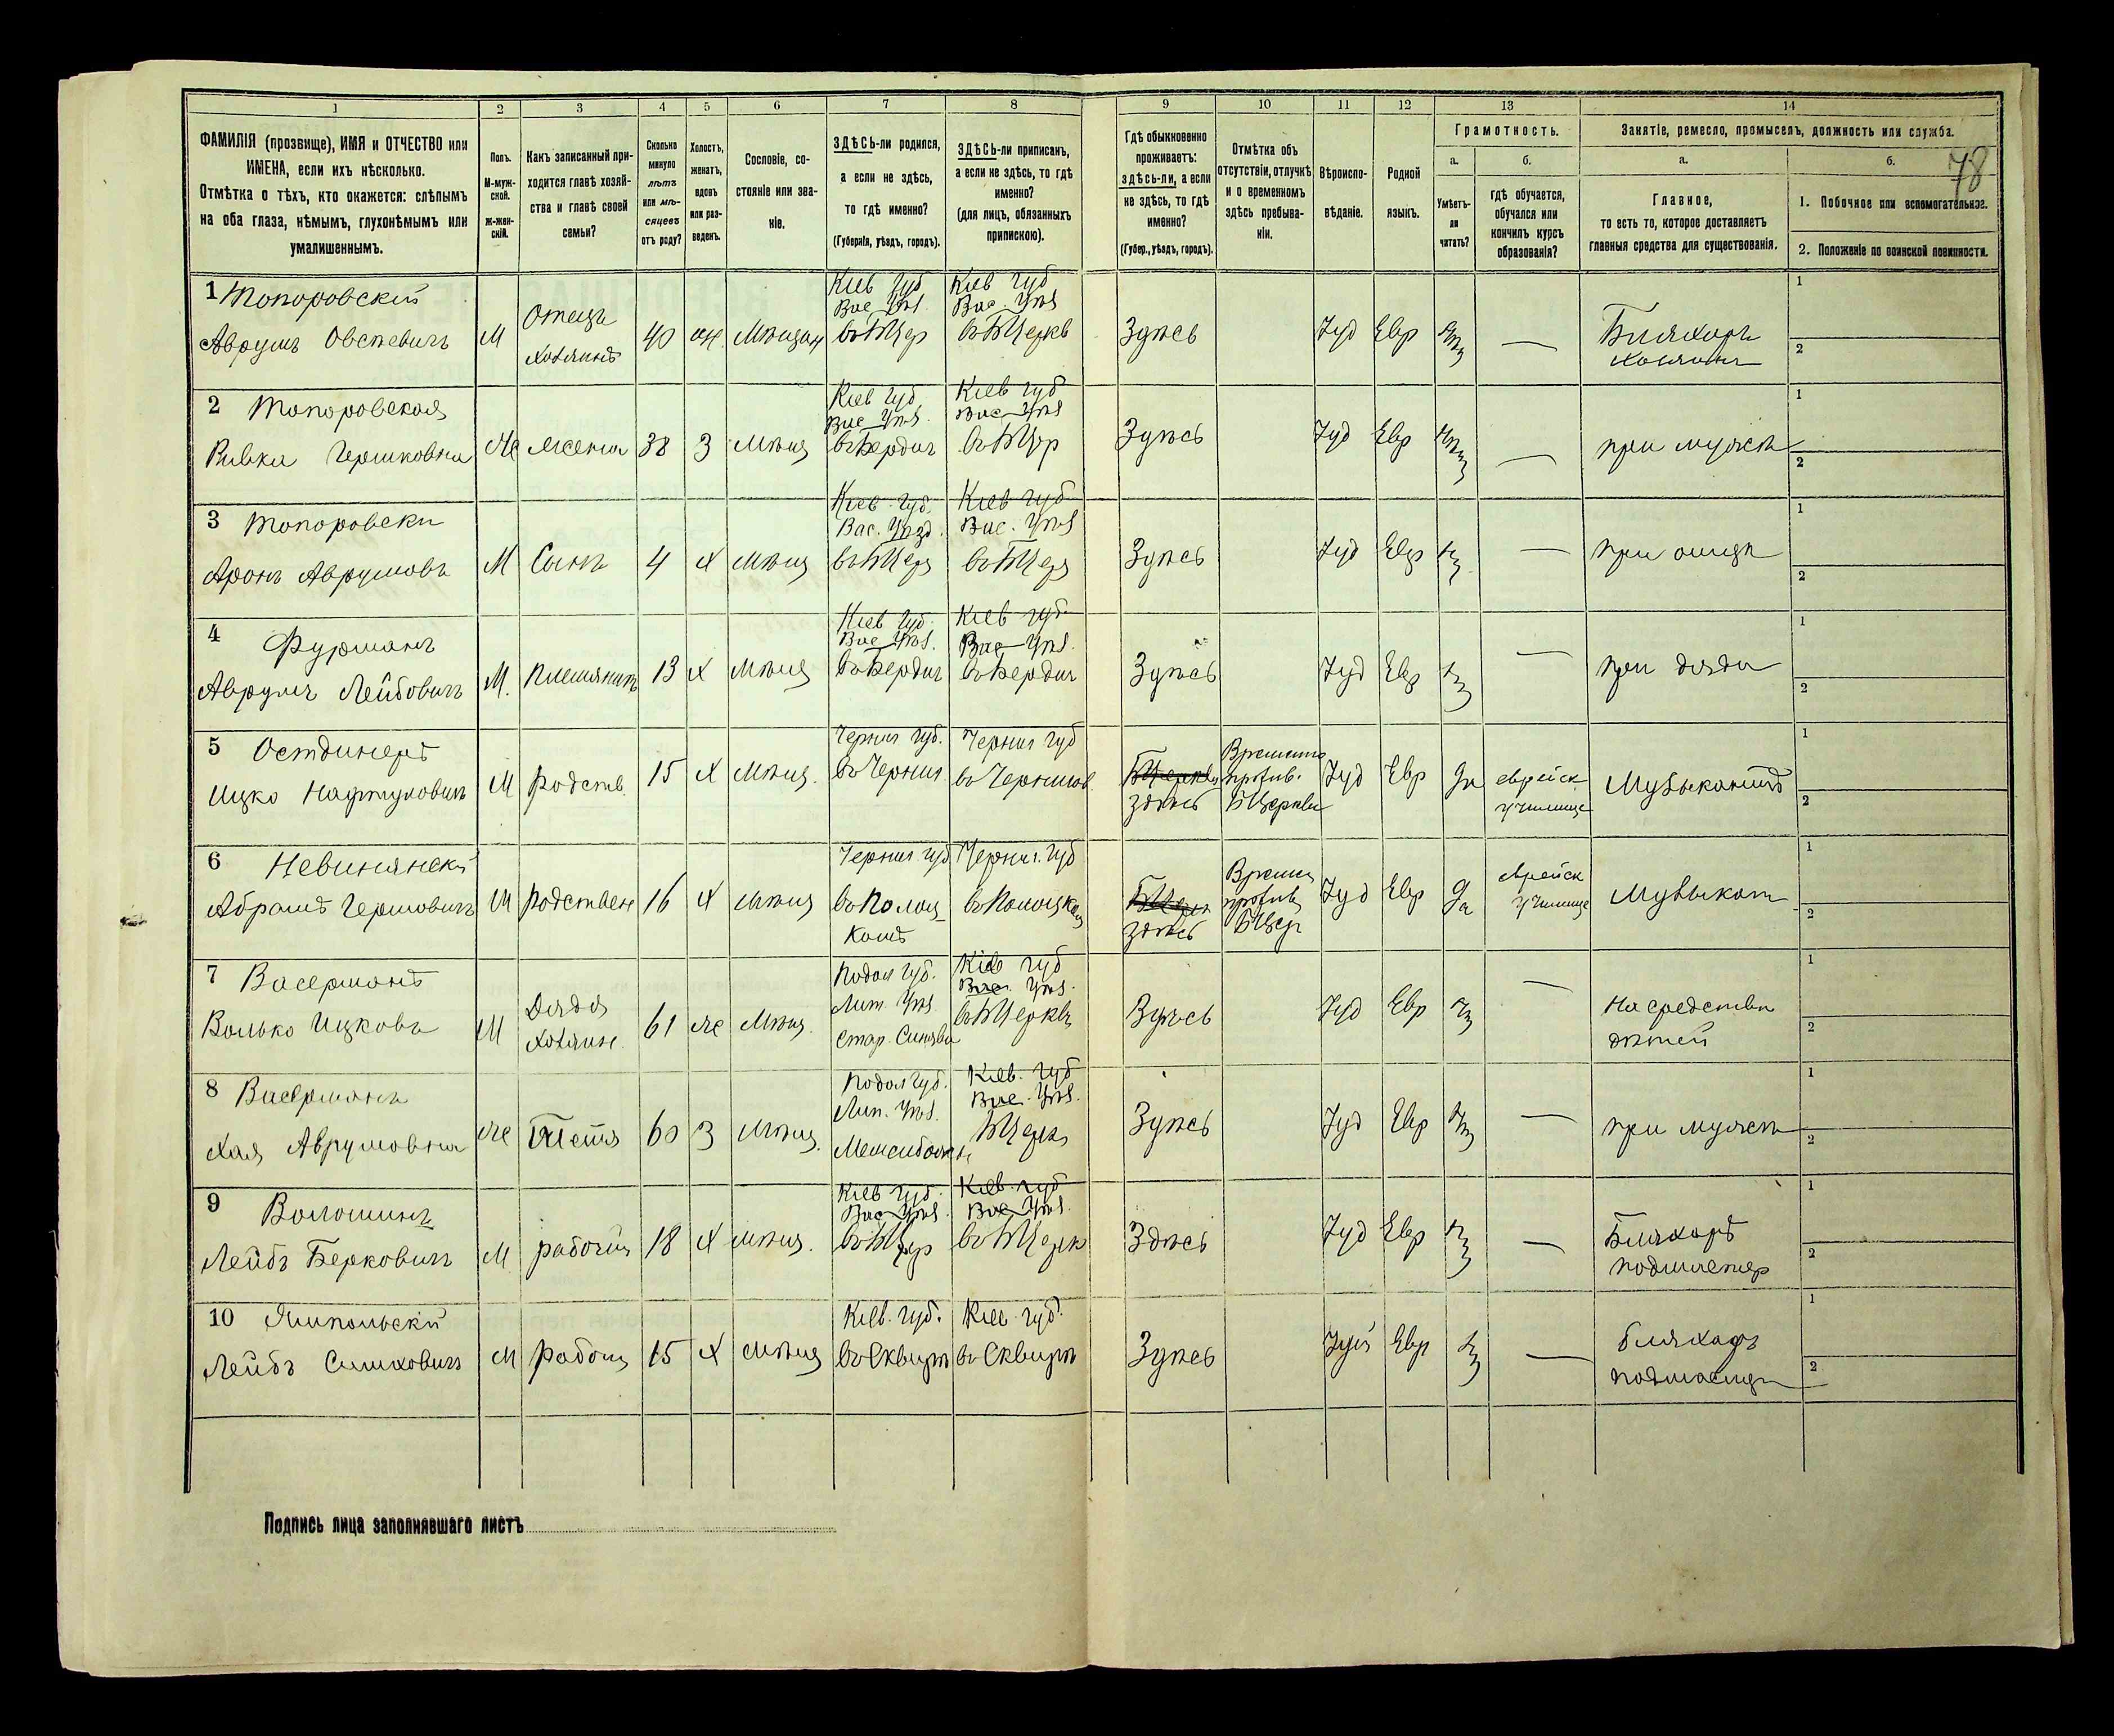 1 2 3 4 5 6 7 8 9 10 11 12 13 14
ФАМИЛІЯ (прозвище), ИМЯ и ОТЧЕСТВО или
ИМЕНА, если ихъ нѣсколько.
Отмѣтка о тѣхъ, кто окажется: слѣпымъ
на оба глаза, нѣмымъ, глухонѣмымъ или
умалишеннымъ.
Полъ.
М-муж-
ской.
ж-жен-
скій.
Какъ записанный при-
ходится главѣ хозяй-
ства и главѣ своей
семьи?
Сколько
минуло
лѣтъ
или мѣ-
сяцевъ
отъ роду?
Холостъ,
женатъ,
вдовъ
или раз-
веденъ.
Сословіе, со-
стояніе или зва-
ніе.
ЗДѢСЬ-ли родился,
а если не здѣсь,
то гдѣ именно?
(Губернія, уѣздъ, городъ).
ЗДѢСЬ-ли приписанъ,
а если не здѣсь, то гдѣ
именно?
(для лицъ, обязанныхъ
припискою).
Гдѣ обыкновенно
проживаетъ:
здѣсь-ли, а если
не здѣсь, то гдѣ
именно?
(Губер., уѣздъ, городъ).
Отмѣтка объ
отсутствіи, отлучкѣ
и о временномъ
здѣсь пребыва-
ніи.
Вѣроиспо-
вѣданіе.
Родной
языкъ.
Грамотность.
а.
Умѣетъ-
ли
читать?
б.
гдѣ обучается,
обучался или
кончилъ курсъ
образованія?
Занятіе, ремесло, промыселъ, должность или служба.
а.
Главное,
то есть то, которое доставляетъ
главныя средства для существованія.
б.
78
1. Побочное или вспомогательное.
2. Положеніе по воинской повинности.
1 Топоровскій
Аврумъ Овсеевичъ
М
Отецъ
хозяинъ
40
Мѣщан
Кіев губ
Вас. Уѣз.
въ БЦер
Кіев губ
Вас. Уѣз
въ БЦеркв
Здѣсь
Іуд
Евр
—
Бляхаръ
хозяинъ
1
2
2 Топоровская
Ривка Гершковна
Ж
жена
38
З
Мѣщ
Кіев губ.
Вас Уѣз.
въ Бердич
Кіев губ
Вас Уѣз
въ БЦер
Здѣсь
Іуд
Евр
—
при мужѣ
1
2
3 Топоровски
Аронъ Аврумовъ
М
Сынъ
4
Х
мѣщ
Кіев. губ.
Вас. Уѣзд.
въ БЦер
Кіев губ
Вас. Уѣз
въ БЦер
Здѣсь
Іуд
Евр
—
при отцѣ
1
2
4 Фурманъ
Аврумъ Лейбовичъ
М.
племяникъ
13
Х
Мѣщ
Кіев губ.
Вас Уѣз.
въ Бердич
Кіев губ.
Вас Уѣз.
въ Бердич
Здѣсь
Іуд
Евр
—
при дяди
1
2
5
Ицко Нафтуловичъ
М
родств.
15
Х
Мѣщ.
Черниг губ.
въ Черниг.
Черниг губ
въ Чернигов.
БЦеркви
здѣсь
Временно
прожив.
БЦеркви
Іуд
Евр
да
еврейск.
училище
Музыкантъ
1
2
6 Невинянски
Абрамъ Гершовичъ
М
родствен
16
Х
мѣщ
Черниг губ
Черниг. губ
здѣсь
Времен
прожив
БЦер
Іуд
Евр
да
еврейск
училище
Музыкант
1
2
7 Васерманъ
Волько Ицковъ
М
Дядя
хозяин.
61
ж
Мѣщ.
Подол губ.
Лит. Уѣз.
Стар. Синява
Кіев губ
Вас. Уѣз.
въ БЦеркв
Здѣсь
Іуд
Евр
—
На средства
дѣтей
1
2
8 Васерманъ
Хая Аврумовна
Ж
Тетя
60
З
Мѣщ.
Подол губ.
Лит. Уѣз.
Кіев. губ
Вас. Уѣз.
БЦерк
Здѣсь
Іуд
Евр
—
при мужѣ
1
2
9 Волошинъ
Лейбъ Берковичъ
М
рабочій
18
Х
мѣщ.
Кіев губ.
Вас Уѣз.
въ БЦер
Кіев губ
Вас Уѣз.
въ БЦерк
Здѣсь
Іуд
Евр
—
Бляхаръ
подмастер
1
2
10 Ямпольски
Лейбъ Симховичъ
М
рабочи
15
Х
мѣщ
Кіев. губ.
въ Сквирѣ
Кіев. губ.
въ Сквирѣ
Здѣсь
Іуд
Евр
—
Бляхаръ
подмастер
1
2
Подпись лица заполнявшаго листъ